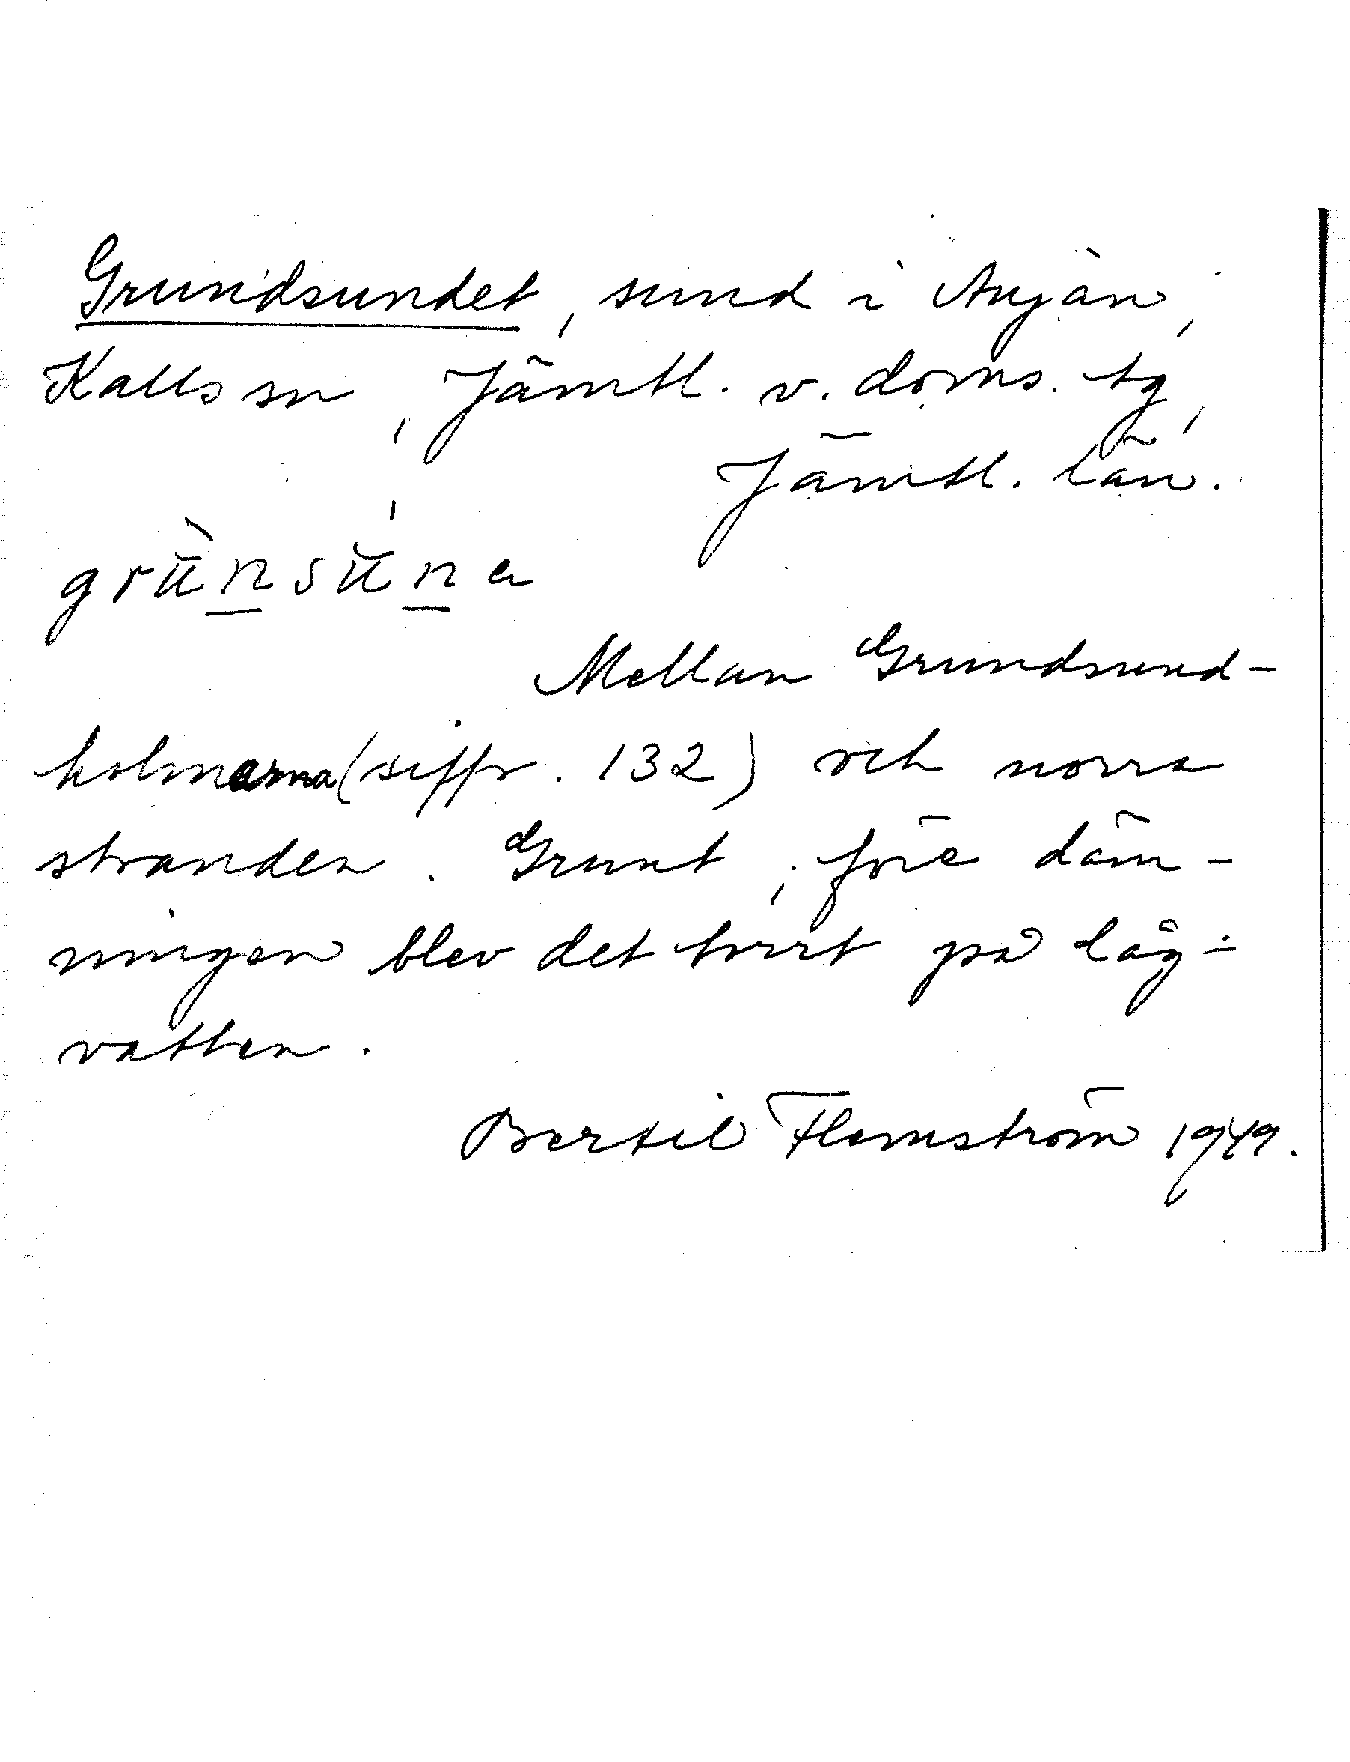 Grundsundet, sund i Anjan,
Kalls sn, Jämtl. v. doms. tg,
Jämtl. län.
grŭ̀nsŭ̍na
Mellan Grundsund-
holmarna (siffr. 132) och norra
stranden. Grunt, före däm-
ningen blev det torrt på låg-
vatten.
Bertil Flemström 1949.